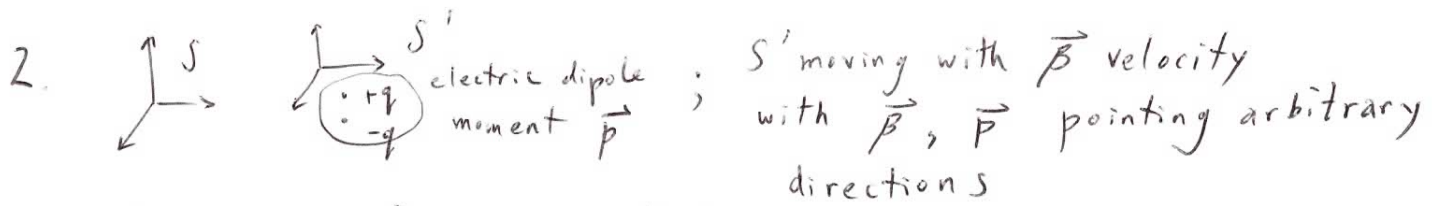 2. S S' electric dipole moment p⃗ ; S' moving with β⃗ velocity
+q
-q
with β⃗, p⃗ pointing arbitrary
directions